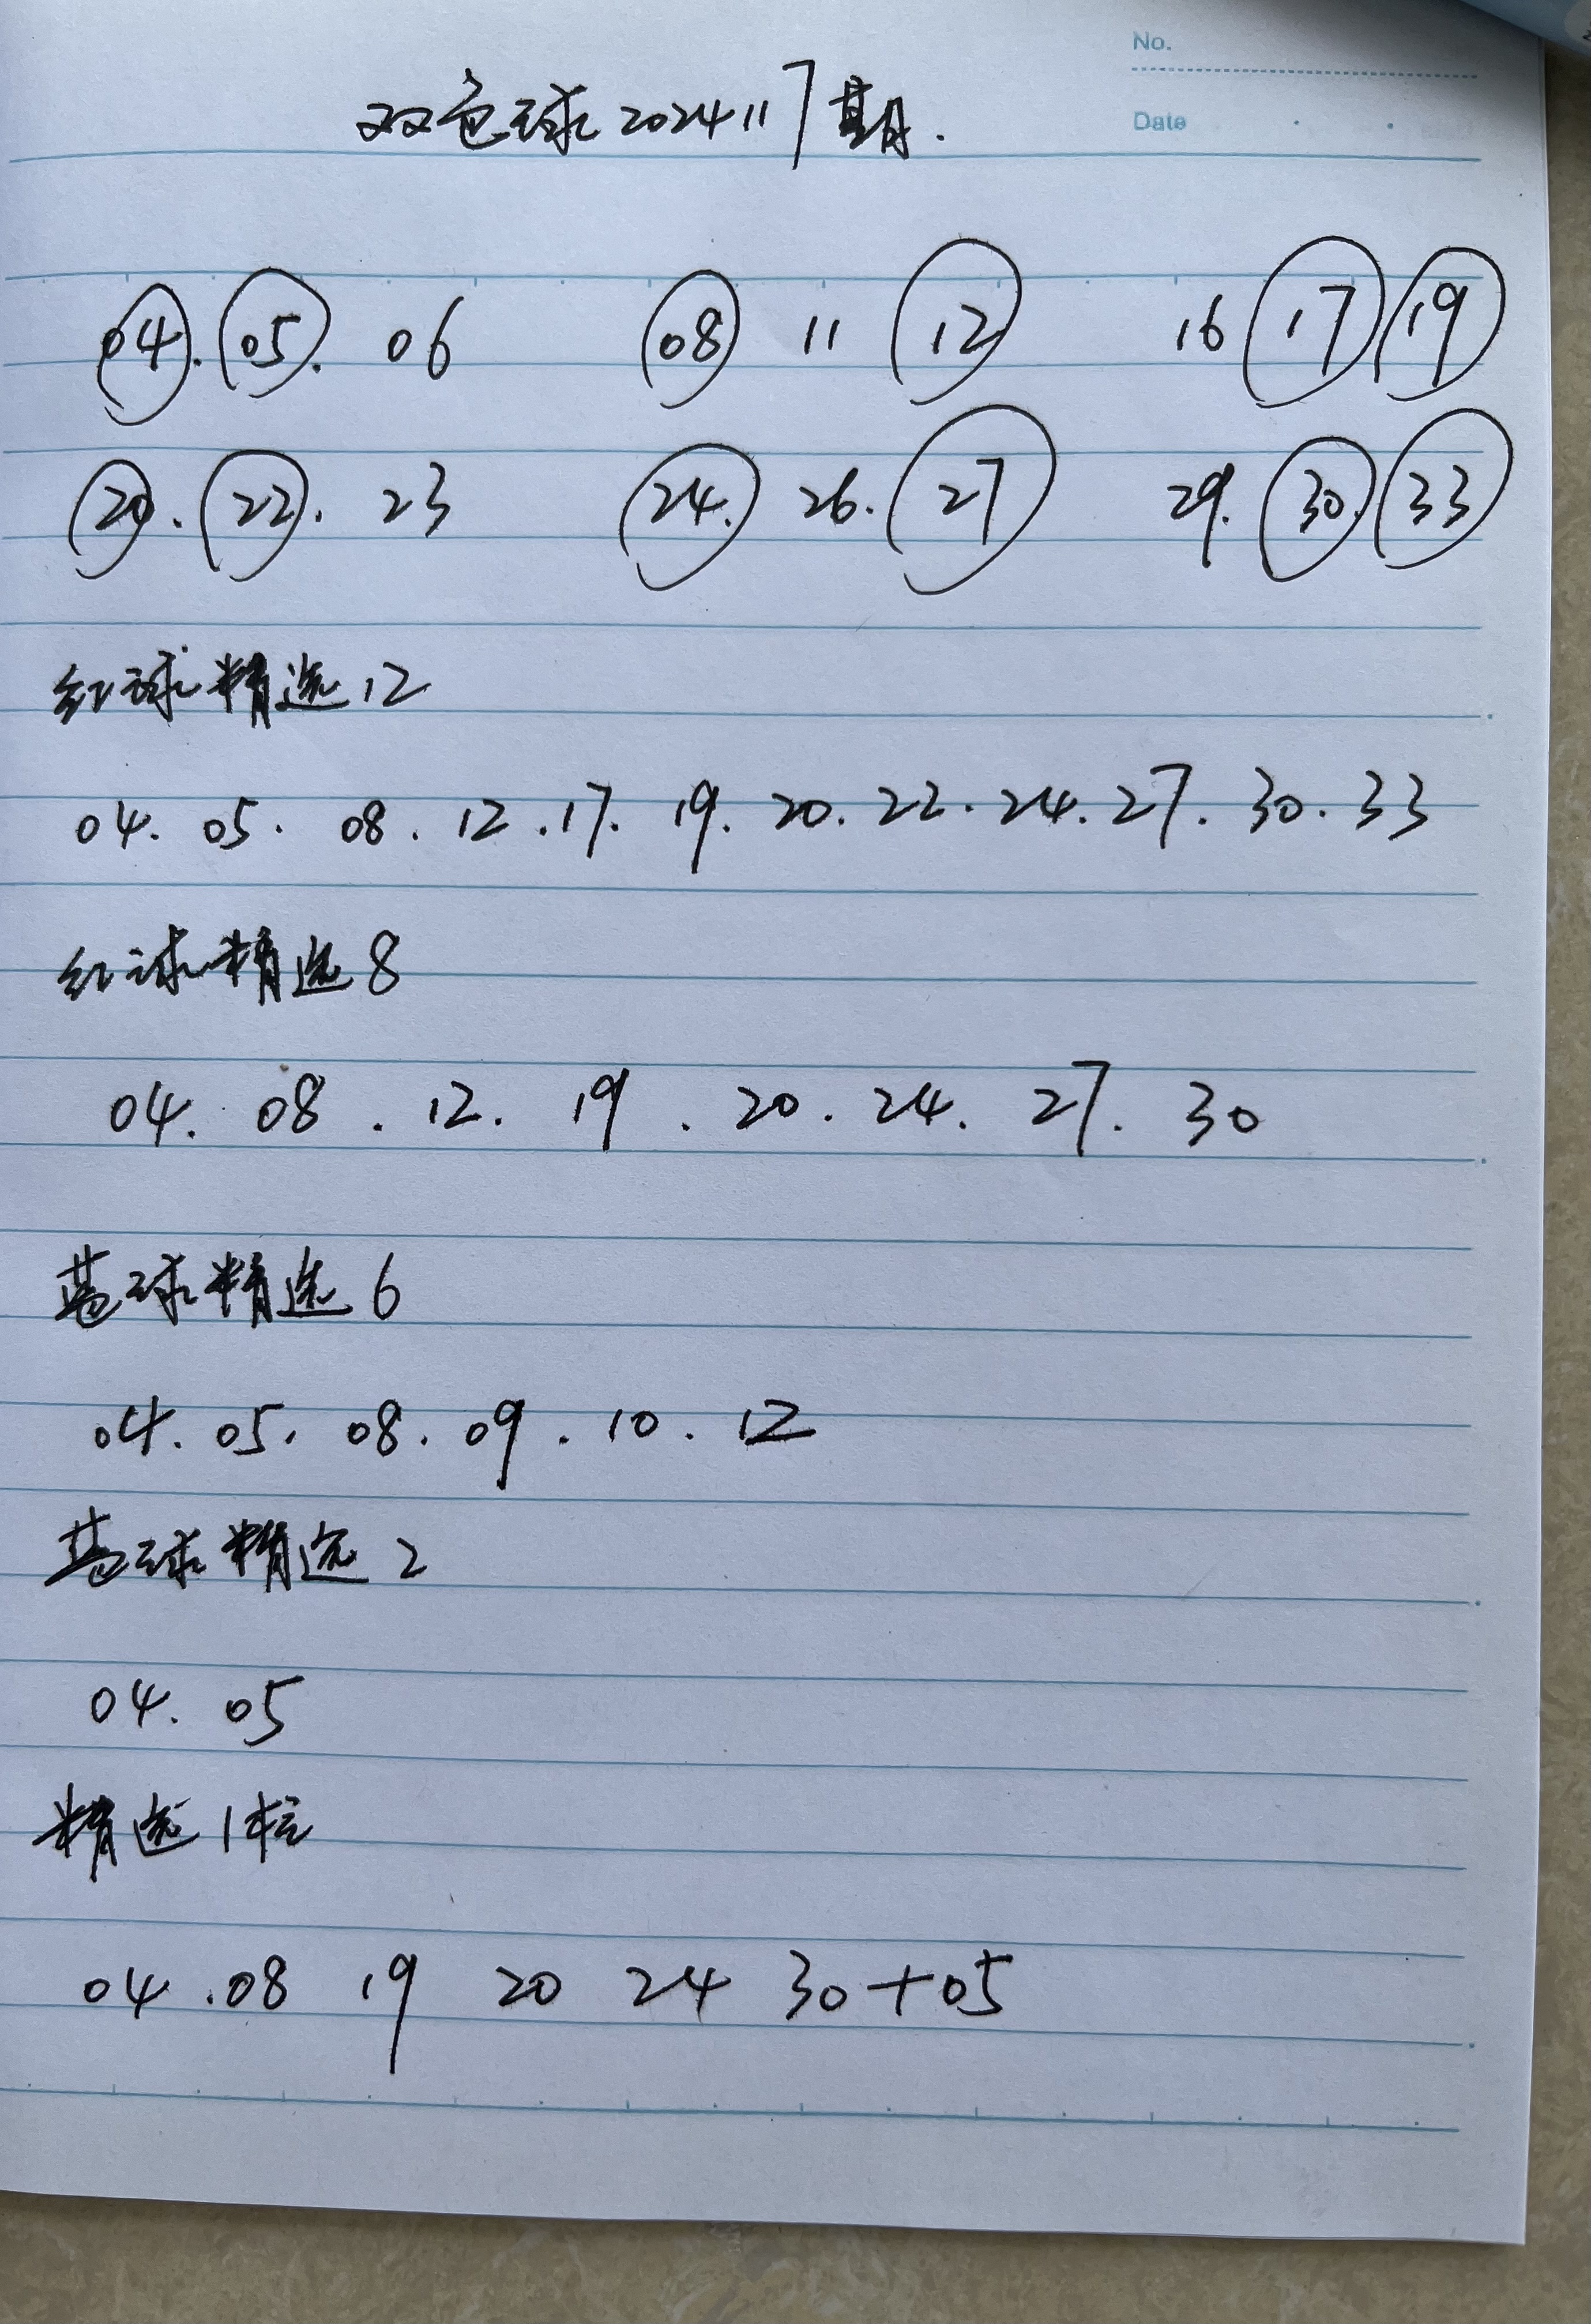 No.
Date
双色球2024117期.
04. 05. 06 08 11 12 16 17 19
20. 22. 23 24. 26. 27 29. 30. 33
红球精选12
04. 05. 08. 12.17. 19. 20. 22. 24. 27. 30. 33
红球精选8
04. 08. 12. 19. 20. 24. 27. 30
蓝球精选6
04. 05. 08. 09. 10. 12
蓝球精选2
04. 05
精选1注
04.08 19 20 24 30+05